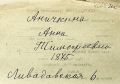 Аничкина
Анна
Тимофеевна
1875.
Ливадийская 6.